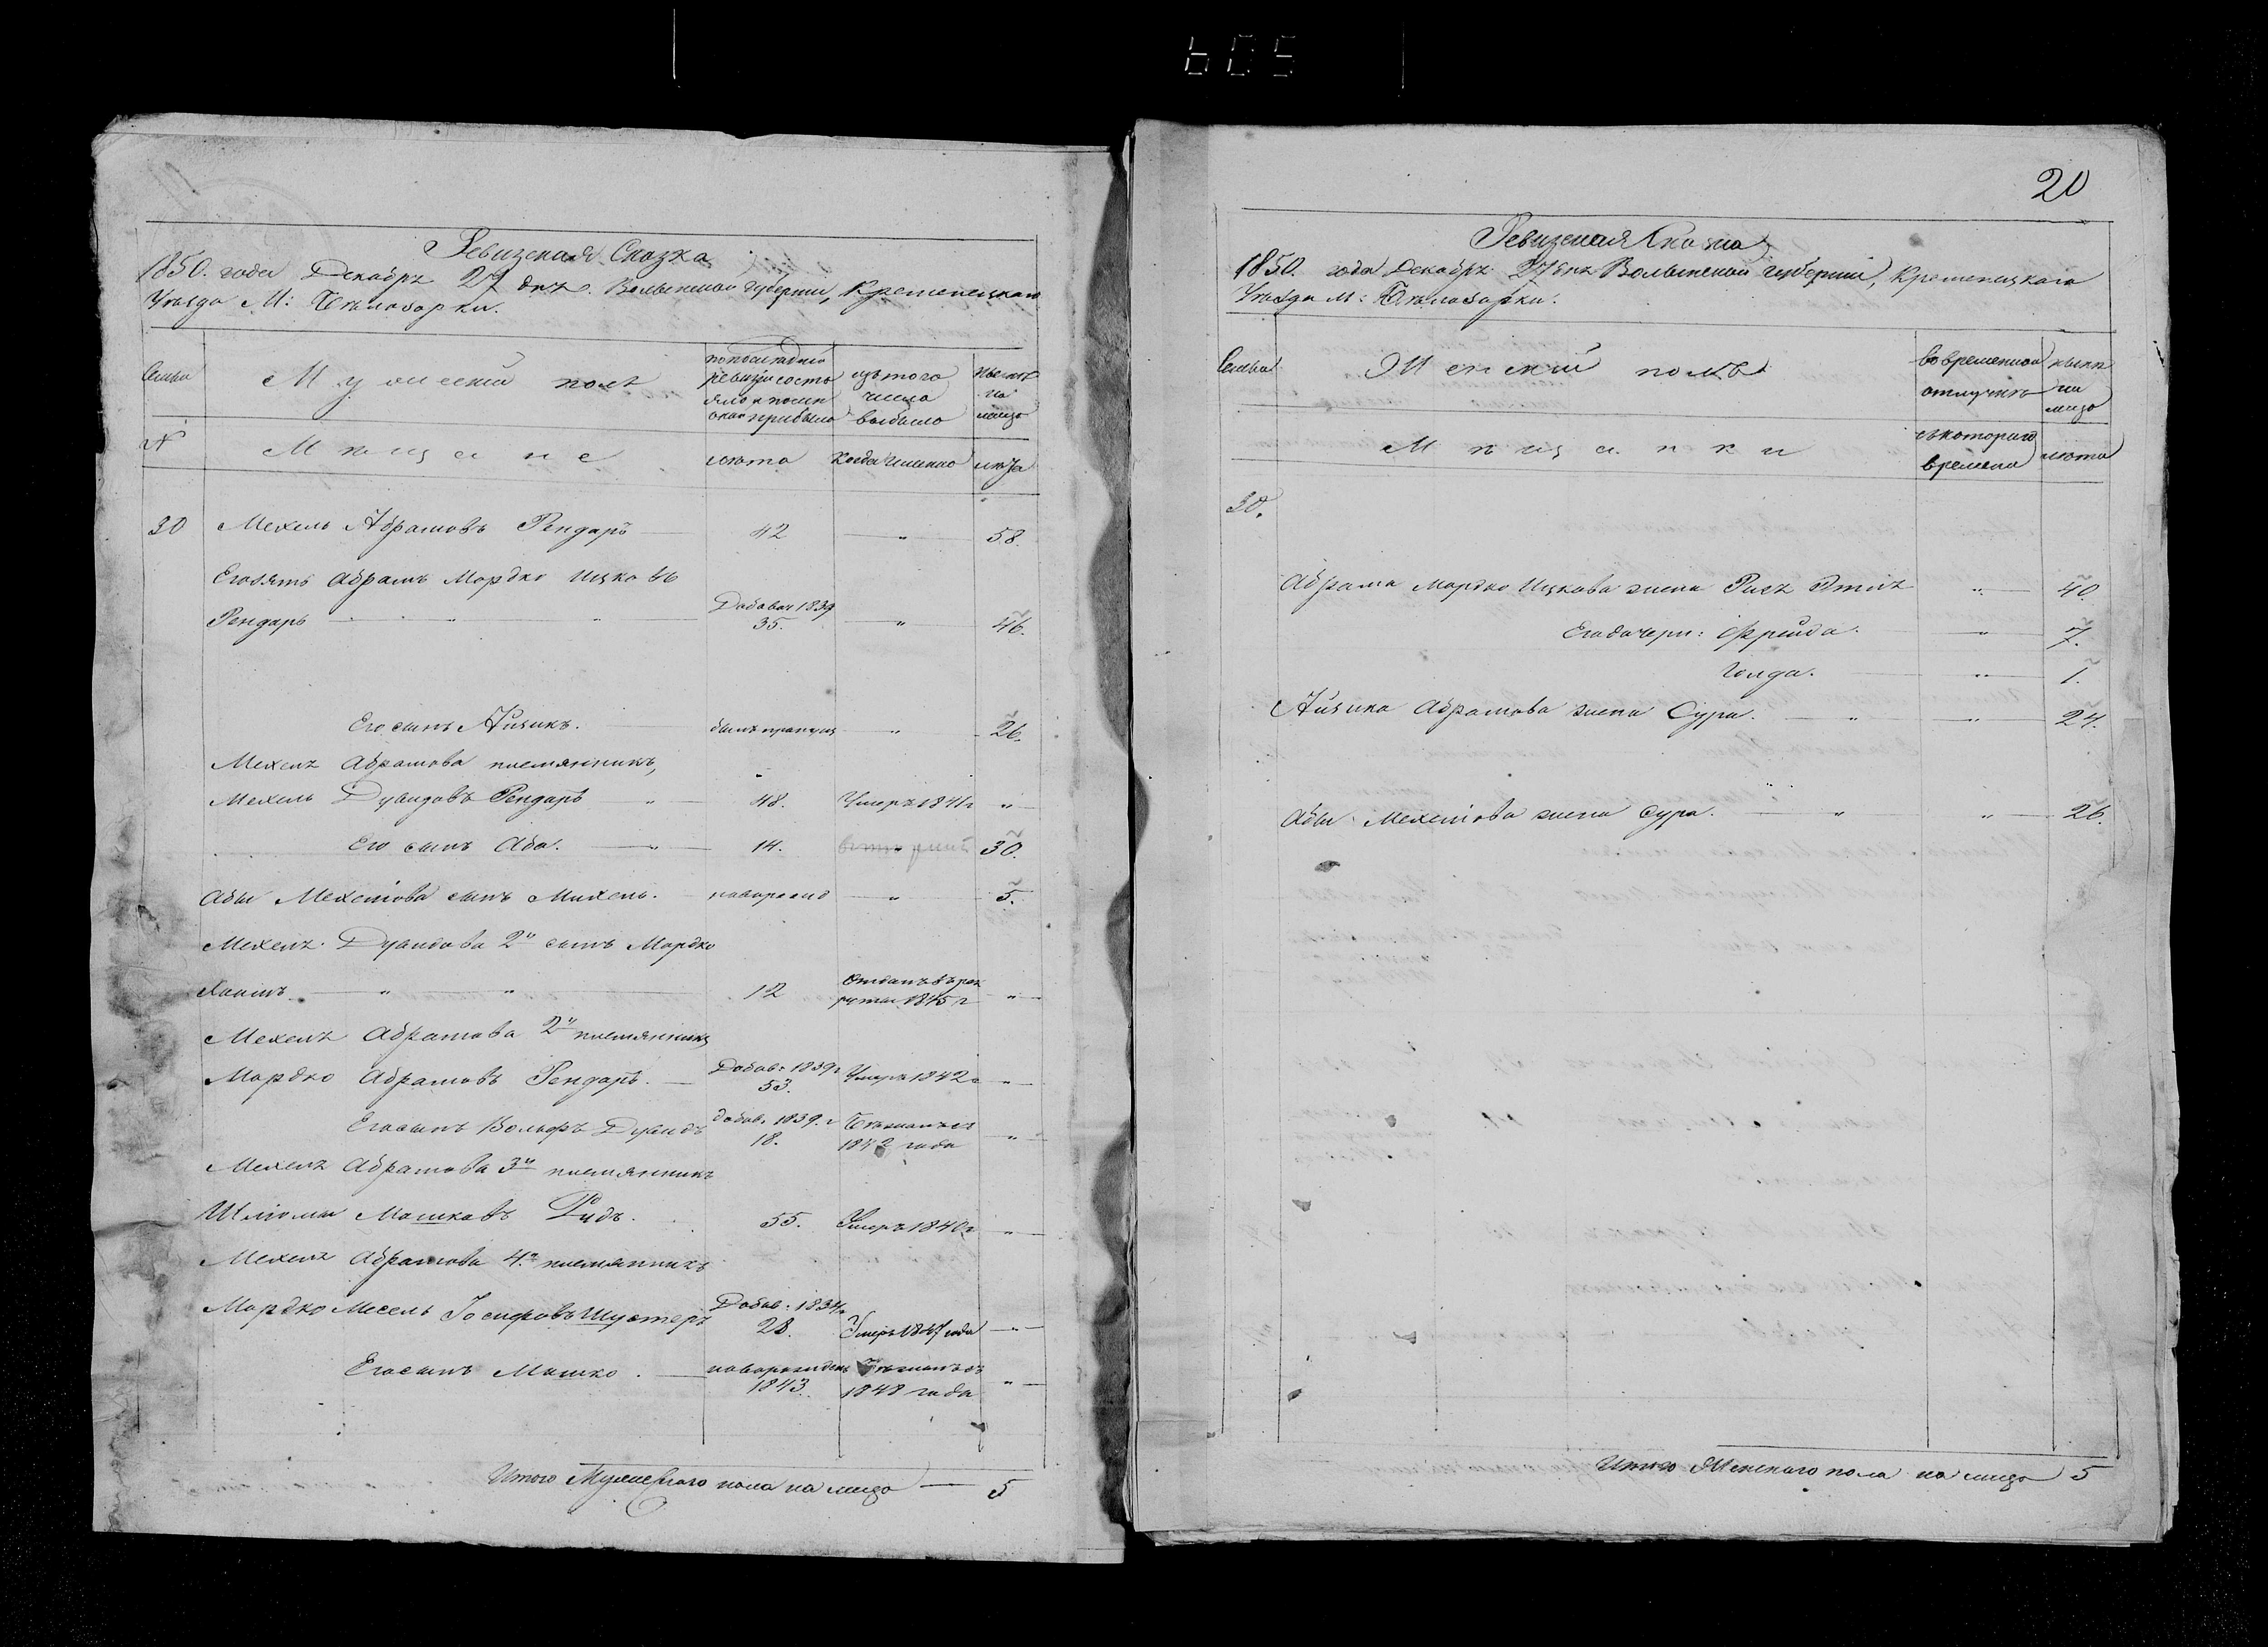 605
Ревизская Сказка
1850. года Декабря 27 дня. Волынской Губернии, Кременецкаго
Уезда М: Белозорки.
Семьи
Мужеский полъ
по последней
ревизии состо
яло и после
оной прибыло
изъ того
числа
выбыло
ныне
на
лицо
№
Мещане
лета
когда именно
лета
30 Мехель Абрамовъ Рендаръ 42 " 58.
Его зять Абрамъ Мордко Ицковъ
Рендаръ " " Добавл 1839
35. " 46.
Его сынъ Айзикъ. былъ пропущ " 26.
Мехеля Абрамова племянникъ,
Мехель Дувидовъ Рендаръ " 48. Умеръ 1841 г "
Его сынъ Аба. " 14. 30.
Абы Мехелева сынъ Михель. новорожд " 5.
Мехеля Дувидова 2й сынъ Мордко
Хаимъ " " 12 Отданъ въ рек
руты 1845 г "
Мехеля Абрамова 2й племянникъ
Мордко Абрамовъ Рендаръ. Добав: 1839 г
53. Умеръ 1842 г "
Его сынъ Вольфъ Дувидъ добав: 1839. г
18. Бежалъ
1842 года "
Мехеля Абрамова 3й племянникъ
Шлиома Мошковъ 55. Умеръ 1840 г "
Мехеля Абрамова 4й племянникъ
Мордко Месель Іосифовъ Шустеръ Добав: 1834 г
28. Умеръ 1847 года "
Его сынъ Мошко. новорожден
1843. 1848 года "
Итого Мужескаго пола на лицо 5
20
Ревизская Сказка
1850. года Декабря 27 дня Волынской Губернии, Кременецкаго
Уезда м: Белозорки.
Семьи
Женский полъ
во временной
отлучке
ныне
на
лицо
Мещанки
съ котораго
времени
лета
30.
Абрама Мордко Ицкова жена Рися Этля " 40.
Его дочери: Фрейда. " 7.
Голда. " 1.
Айзика Абрамова жена Сура. " " 24.
Абы Мехелева жена Сура. " " 26.
Итого Женскаго пола на лицо 5